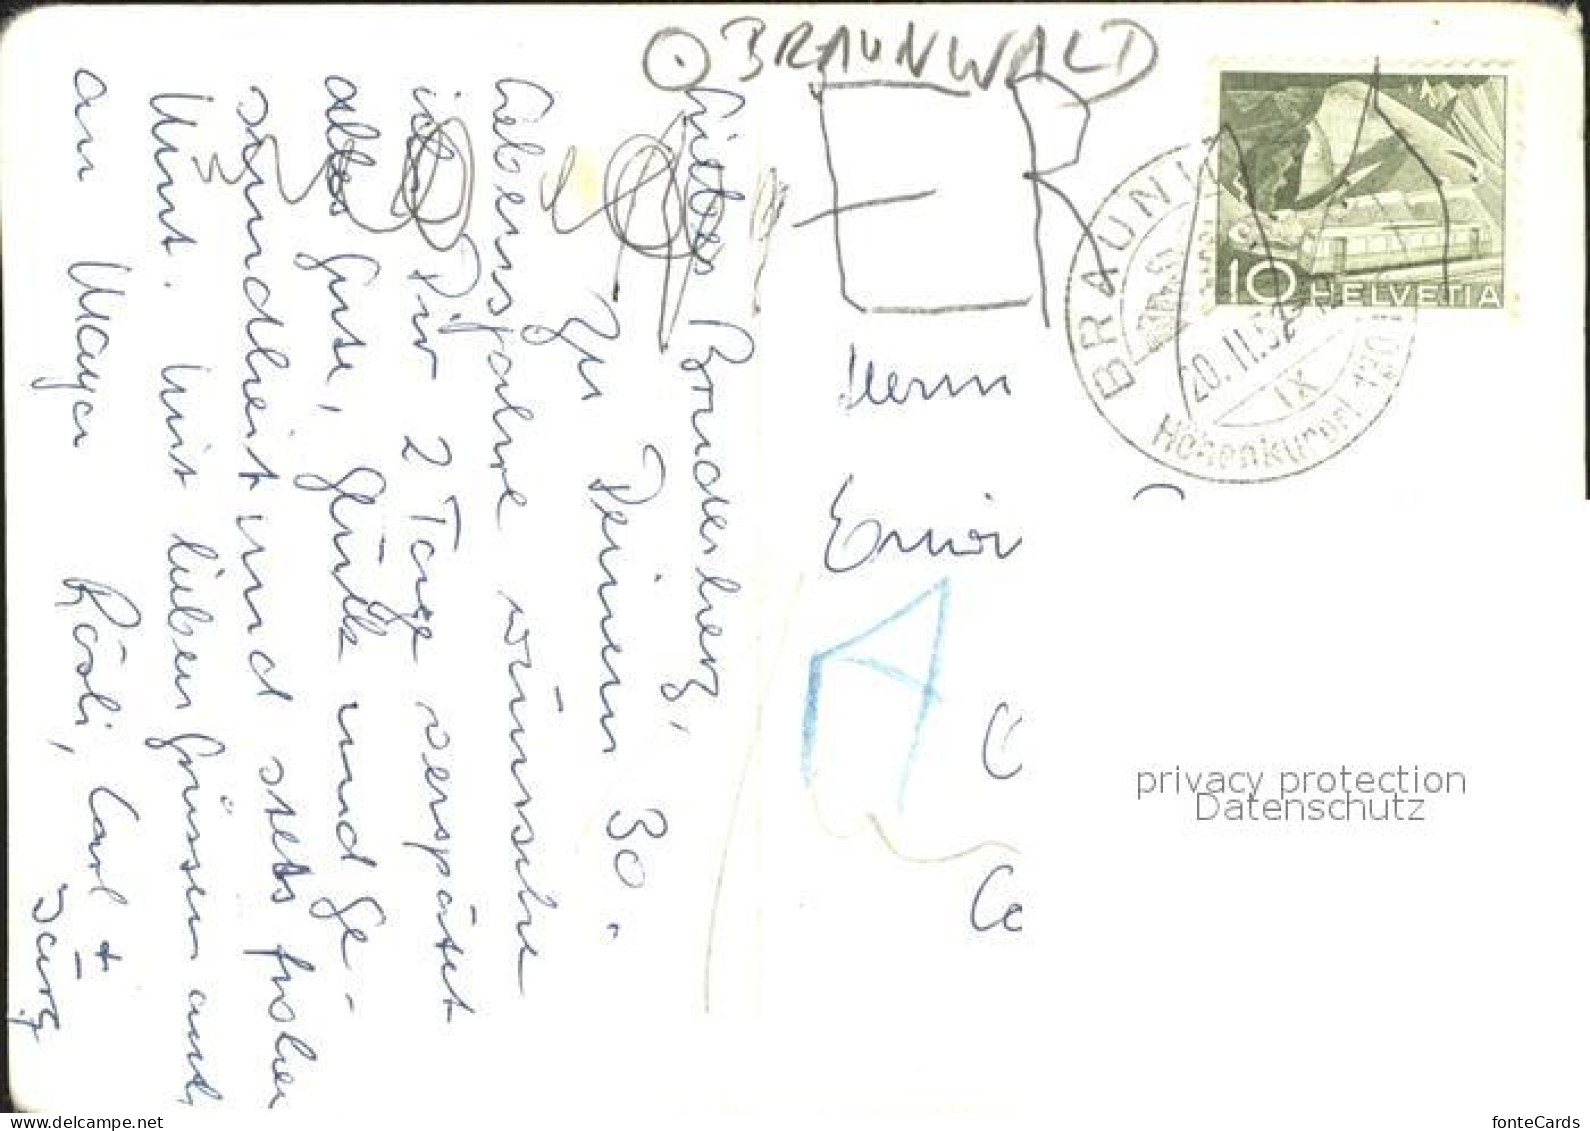 BRAUNWALD
Liebes Bruderherz,
Zu Deinem 30.
Lebensjahre wünsche
ich Dir 2 Tage verspätet
alles Gute, Glück und Ge-
sundheit und stets frohen
Mut. Mit lieben Grüssen auch
an Maya Rösli, Carl +
Jürg
Herrn
Erwin
BRAUNWALD
20. II. 52
IX
Höhenkurort
10 HELVETIA
privacy protection
Datenschutz
www.delcampe.net
fonteCards